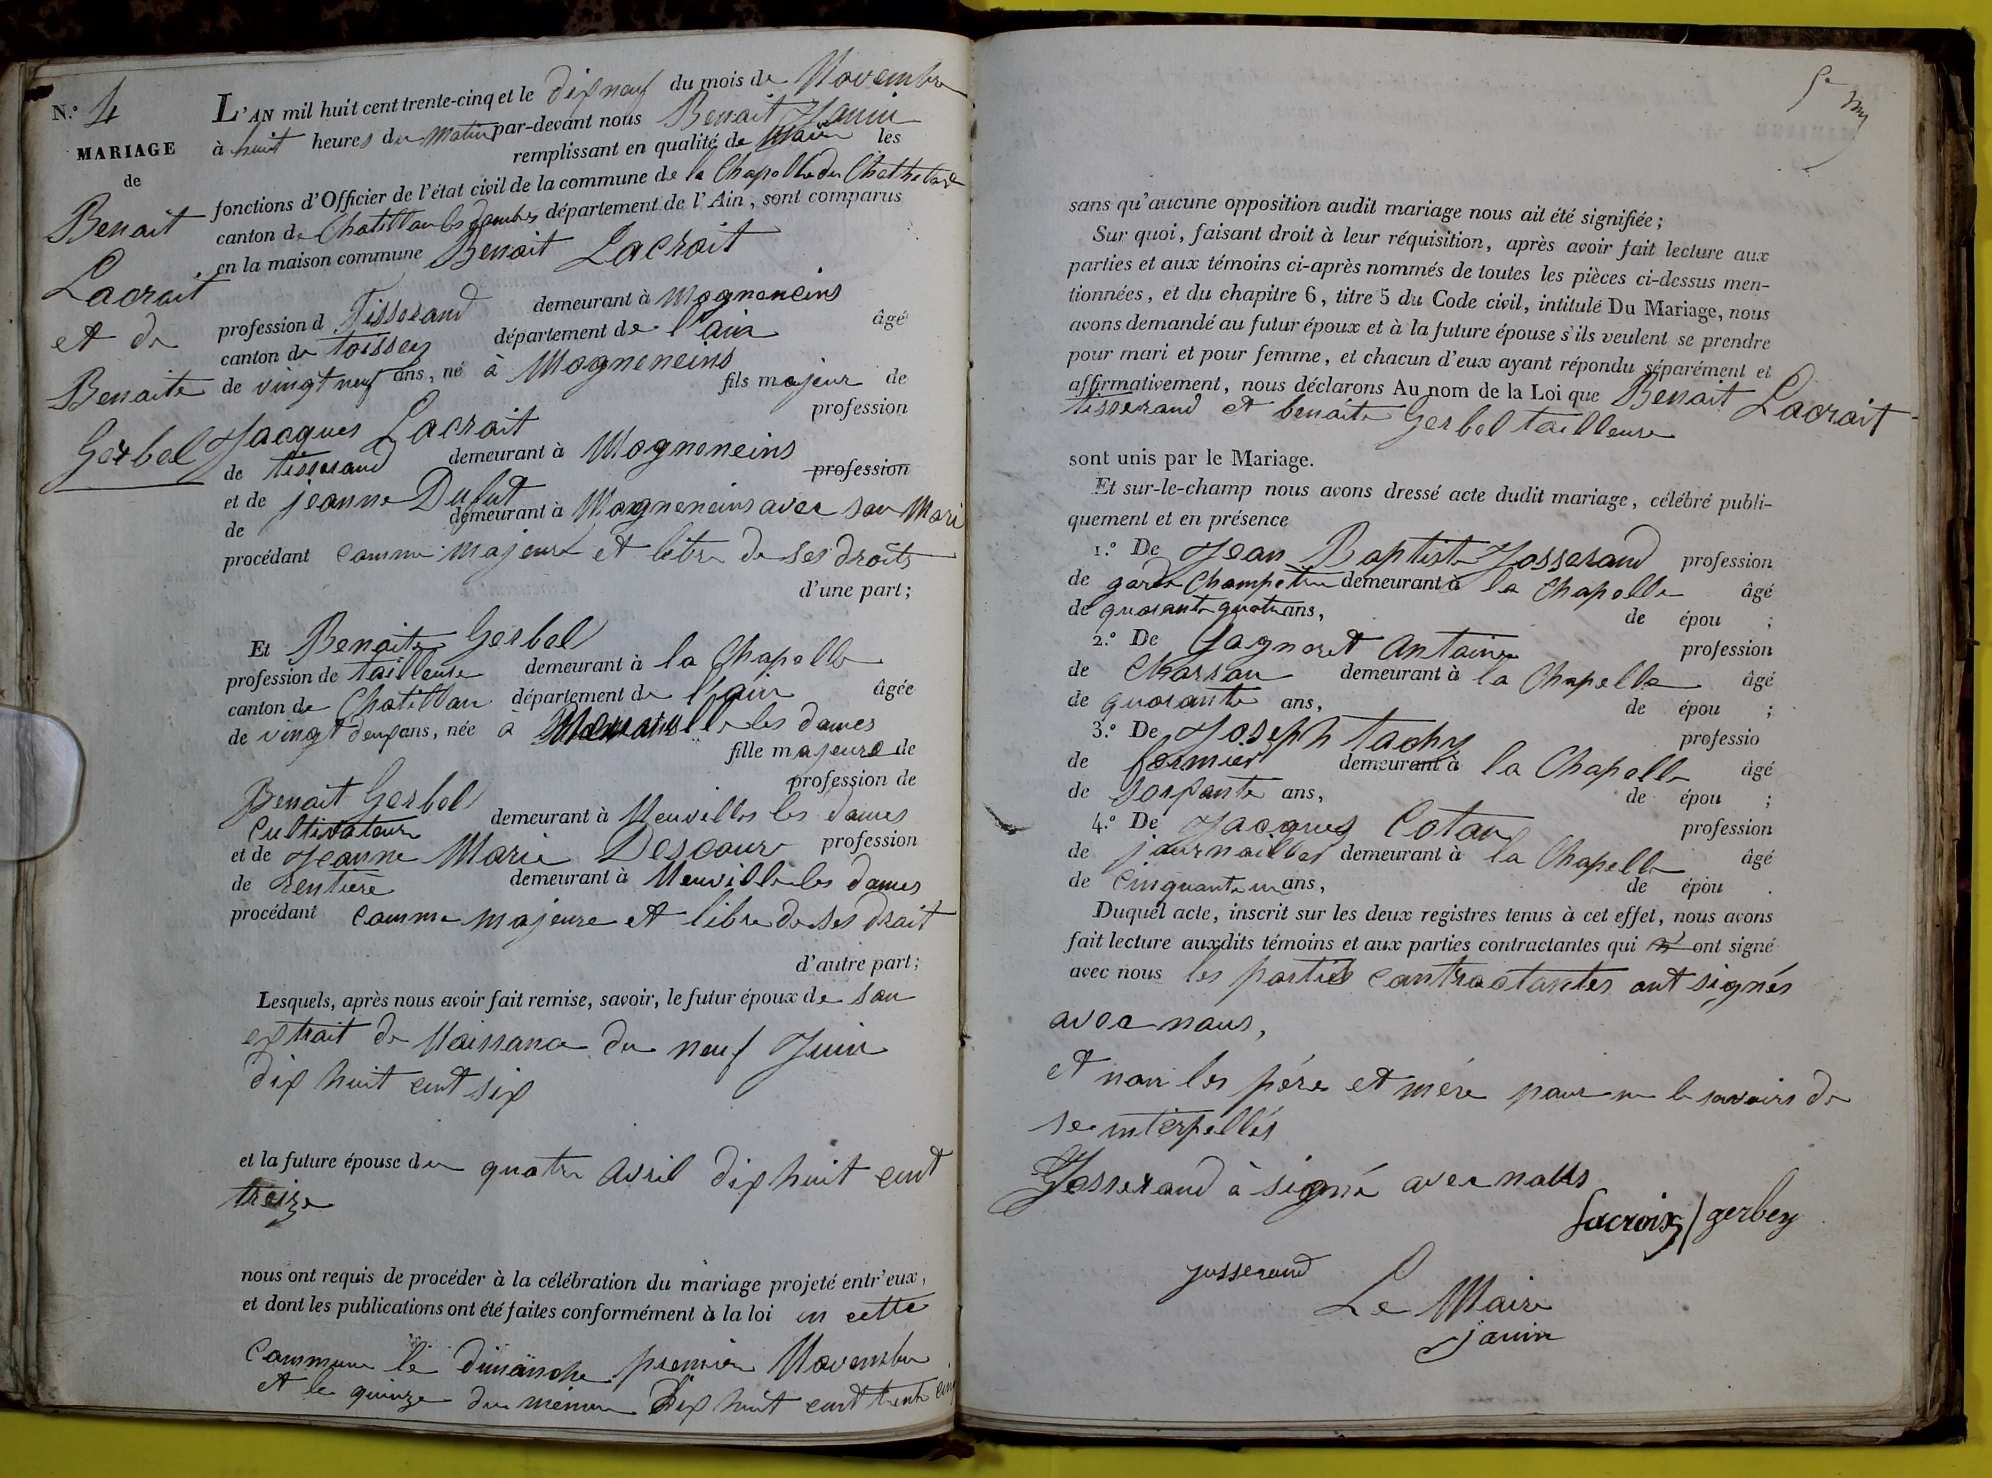 N.º 4
MARIAGE
de
Benait
Lacroit
et de
Benaite
Gerbel
L'AN mil huit cent trente-cinq et le dix neuf du mois de Novembre
à huit heures du matin par-devant nous Benait Janin
remplissant en qualité de Maire les
fonctions d'Officier de l'état civil de la commune de la Chapelle du Chathelard
canton de Chatillan les dombes département de l'Ain, sont comparus
en la maison commune Benoit Lacroit
profession d Tisserand demeurant à Mogneneins
canton de toissey département de l'ain âgé
de vingt neuf ans, né à Mogneneins
fils majeur de
Jacques Lacroit profession
de tisserand demeurant à Mogneneins
et de jeanne Dufut profession
de demeurant à Mogneneins avec son Mari
procédant comme majeure et libre de ses droits
d'une part;
Et Benaite Gerbel
profession de tailleuse demeurant à la Chapelle
canton de Chatillan département de l'ain âgée
de vingt deux ans, née à les dames
fille majeure de
Benait Gerbel profession de
Cultivateur demeurant à Neuvilles les dames
et de Jeanne Marie Descour profession
de Rentière demeurant à Neuville les dames
procédant comme majeure et libre de ses drait
d'autre part;
Lesquels, après nous avoir fait remise, savoir, le futur époux de san
extrait de Naissance du neuf Juin
dix huit cent six
et la future épouse du quatre avril dix huit cent
treize
nous ont requis de procéder à la célébration du mariage projeté entr'eux,
et dont les publications ont été faites conformément à la loi en cette
Commune le dimanche premier Novembre
et le quinze du même dix huit cent trente cinq
sans qu'aucune opposition audit mariage nous ait été signifiée;
Sur quoi, faisant droit à leur réquisition, après avoir fait lecture aux
parties et aux témoins ci-après nommés de toutes les pièces ci-dessus men-
tionnées, et du chapitre 6, titre 5 du Code civil, intitulé Du Mariage, nous
avons demandé au futur époux et à la future épouse s'ils veulent se prendre
pour mari et pour femme, et chacun d'eux ayant répondu séparément et
affirmativement, nous déclarons Au nom de la Loi que Benait Lacrait
tisserand et benaite Gerbel tailleuse
sont unis par le Mariage.
Et sur-le-champ nous avons dressé acte dudit mariage, célébré publi-
quement et en présence
1.º De Jean Baptiste Josserand profession
de garde Champetre demeurant à la Chapelle âgé
de quarante quatre ans, de épou ;
2.º De Gagneret Antaine profession
de Charron demeurant à la Chapelle âgé
de quarante ans, de épou ;
3.º De Joseph tachy professio
de fermier demeurant à la Chapelle âgé
de soixante ans, de épou ;
4.º De Jacques Cotan profession
de journaillier demeurant à la Chapelle âgé
de Cinquante un ans, de épou .
Duquel acte, inscrit sur les deux registres tenus à cet effet, nous avons
fait lecture auxdits témoins et aux parties contractantes qui n' ont signé
avec nous les parties cantractantes ant signés
avec naus,
et nan les père et mère paur ne le savoirs de
se interpellés
Josserand à signé avec naus
Lacroix gerbey
josserand
Le Maire
janin